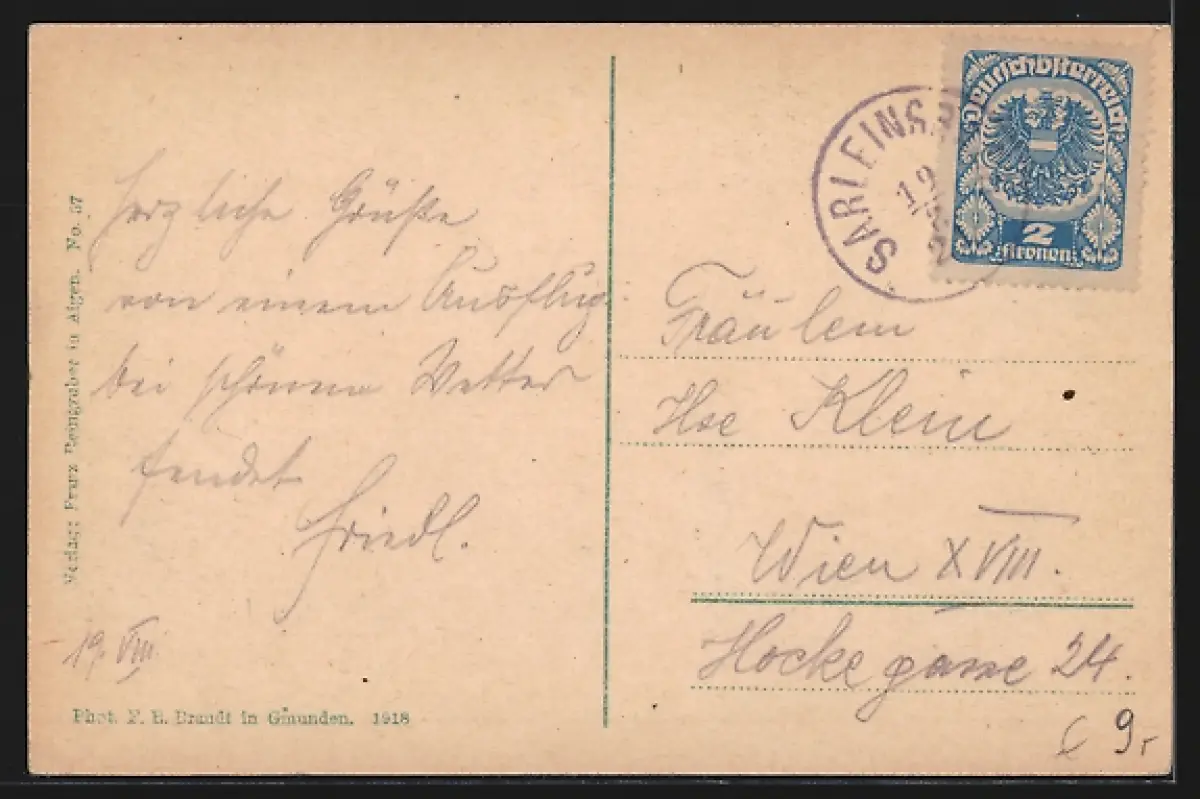 Herzliche Grüße
von einem Ausflug
bei schönem Wetter
sendet
Friedl.
19. VIII.
Verlag: Franz Reingruber in Aigen. No. 57
Phot. F. E. Brandt in Gmunden. 1918
SARLEINSB
19
2
Deutschösterreich
2
Kronen
Fräulein
Klein
Wien XVIII.
Hockegasse 24.
9